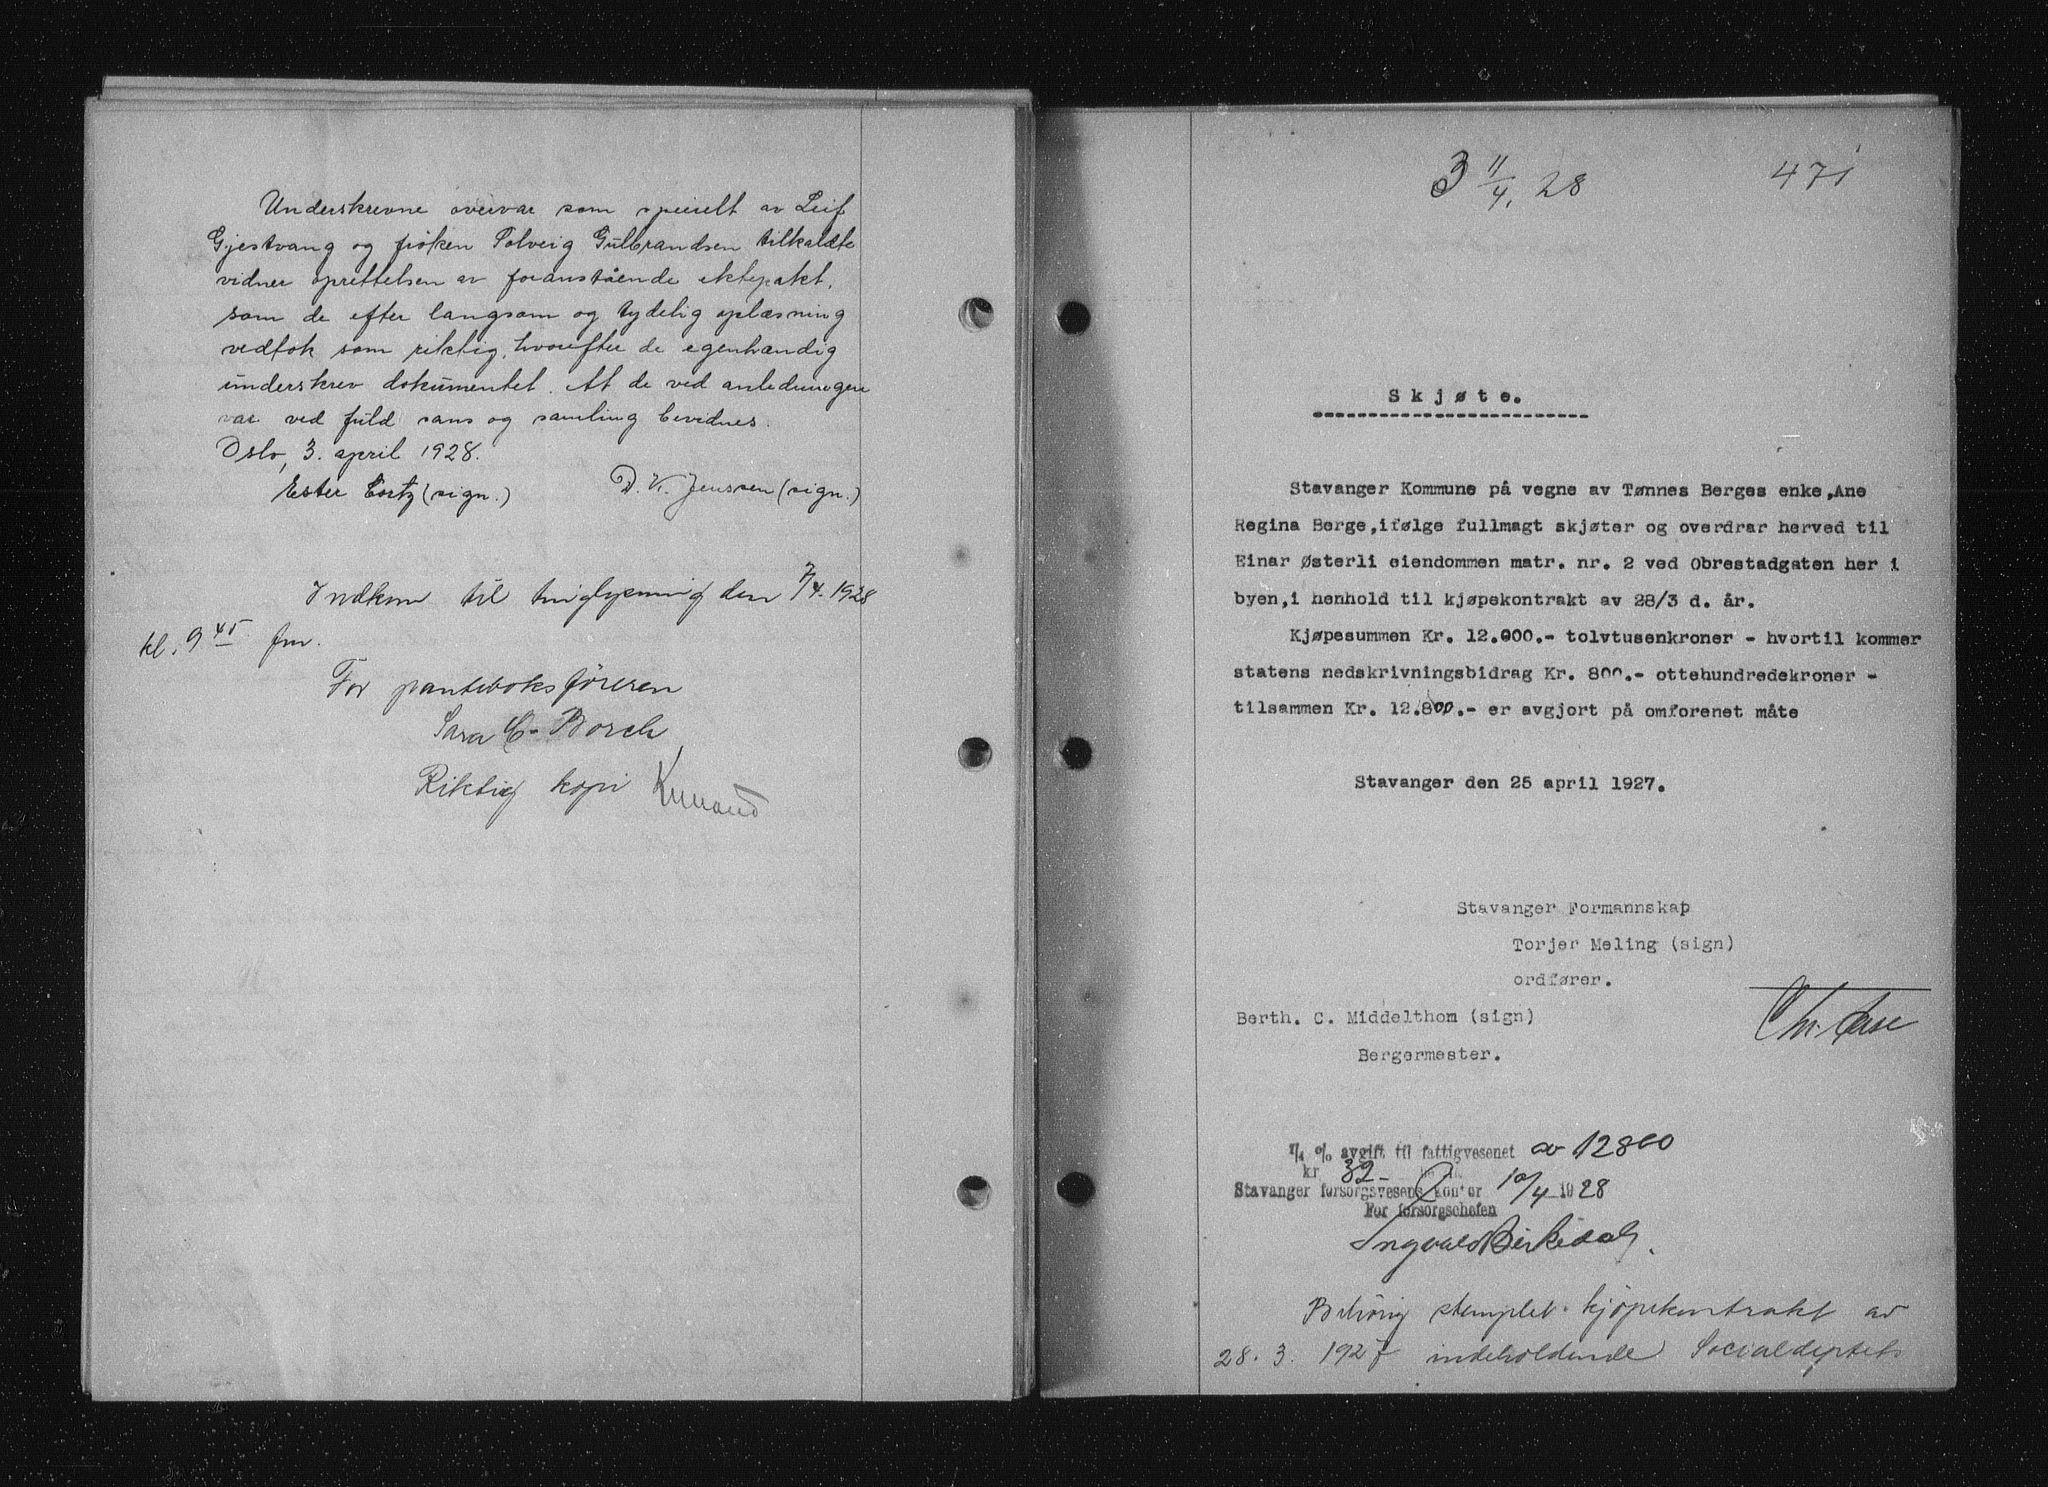 Underskrevne overvar som spesielt av Leif
Gjestvang og frøken Solveig Gulbrandsen tilkaldte
vidner oprettelsen av foranstående ektepakt,
som de efter langsom og tydelig oplæsning
vedtok som riktig, hvorefter de egenhændig
underskrev dokumentet. At de ved anledningen
var ved fuld sans og samling bevidnes.
Oslo, 3. april 1928.
Ester Cortz (sign.) D. K. Jenssen (sign.)
Indkom til tinglysning den 7/4. 1928
kl. 9 45 fm.
For panteboksføreren
Sara C. Borch
Riktig kopi
3 11/4. 28 471
Skjøte.
Stavanger Kommune på vegne av Tønnes Berges enke, Ane
Regina Berge, ifølge fullmagt skjøter og overdrar herved til
Einar Østerli eiendommen matr. nr. 2 ved Obrestadgaten her i
byen, i henhold til kjøpekontrakt av 28/3 d. år.
Kjøpesummen Kr. 12.000.- tolvtusenkroner - hvortil kommer
statens nedskrivningsbidrag Kr. 800.- ottehundredekroner -
tilsammen Kr. 12.800.- er avgjort på omforenet måte
Stavanger den 25 april 1927.
Stavanger Formannskap
Torjer Meling (sign)
ordfører.
Berth. C. Middelthom (sign)
Bergermester.
1/4 % avgift til fattigvesenet av 12800
kr 32-
Stavanger forsorgsvesens kontor 10/4 1928
For forsorgschefen
Ingvald Birkedal.
Behørig stemplet kjøpekontrakt av
28. 3. 1927 indeholdende Socialdeptets